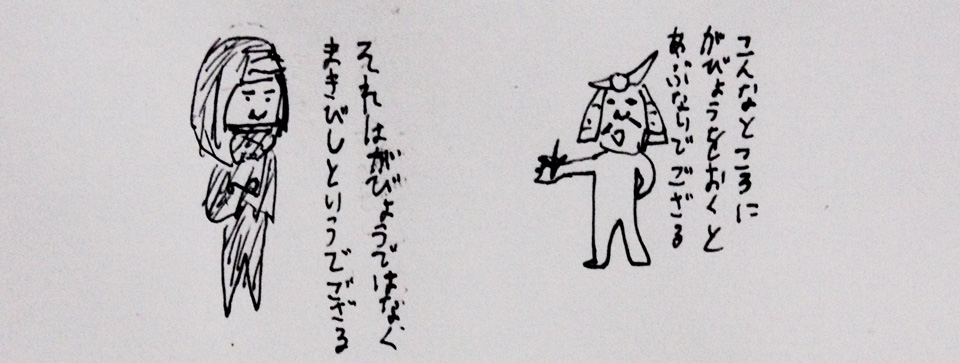 こんなところに
がびょうをおくと
あぶないでござる
それはがびょうではなく
まきびしというでござる